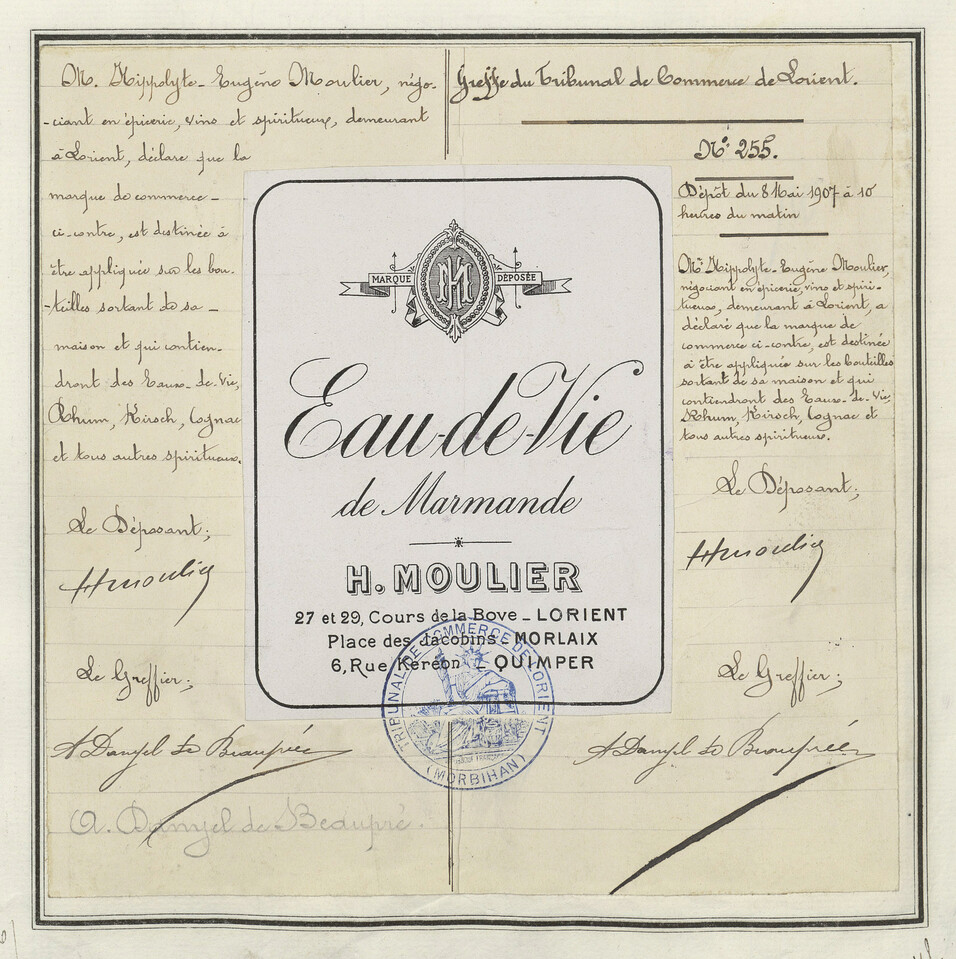 M. Hippolyte-Eugène Moulier, négo-
-ciant en épicerie, vins et spiritueux, demeurant
à Lorient, déclare que la
marque de commerce-
ci-contre, est destinée à
être appliquée sur les bou-
-teilles sortant de sa-
maison et qui contien-
dront des Eaux-de-Vie,
Rhum, Kirsch, Cognac
et tous autres spiritueux.
Le Déposant;
Hmoulier
Le Greffier;
A Danyel de Beaupréé
A. Danyel de Beaupré.
MARQUE DÉPOSÉE
HM
Eau-de-Vie
de Marmande
H. MOULIER
27 et 29, Cours de la Bove - LORIENT
Place des Jacobins - MORLAIX
6, Rue Kéréon - QUIMPER
TRIBUNAL DE COMMERCE DE LORIENT
(MORBIHAN)
Greffe du Tribunal de Commerce de Lorient.
N° 255.
Dépôt du 8 Mai 1907 à 10
heures du matin
Mr Hippolyte-Eugène Moulier,
négociant en épicerie, vins et spiri-
tueux, demeurant à Lorient, a
déclaré que la marque de
commerce ci-contre, est destinée
à être appliquée sur les bouteilles
sortant de sa maison et qui
contiendront des Eaux-de-Vie,
Rhum, Kirsch, Cognac et
tous autres spiritueux.
Le Déposant;
Hmoulier
Le Greffier;
A Danyel de Beaupréé